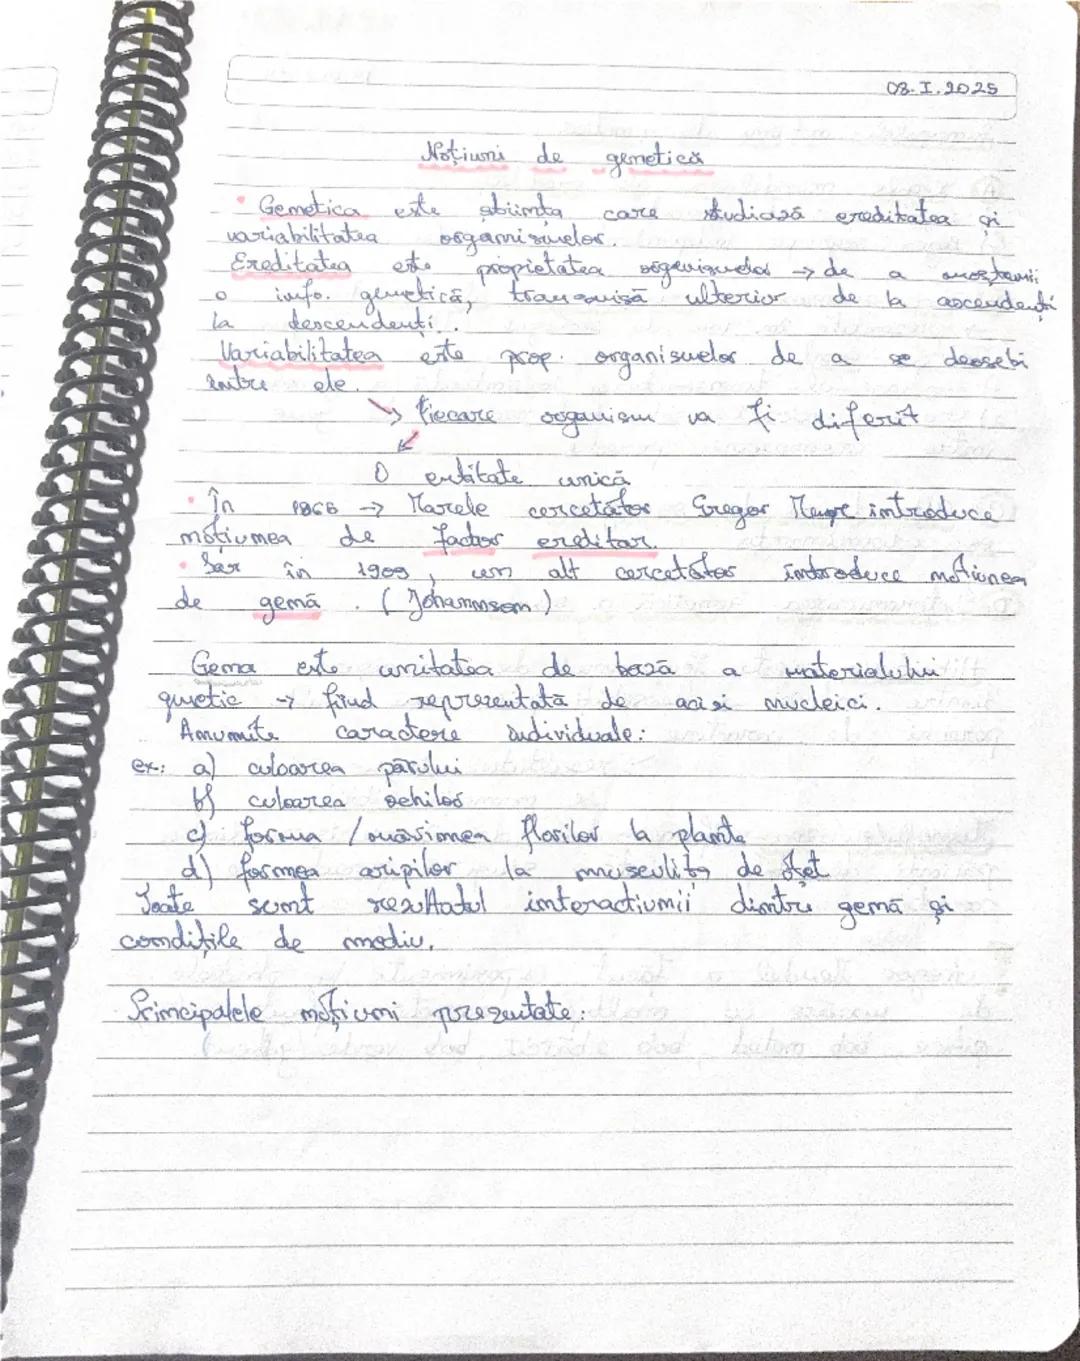 08.I.2025
Noțiuni de genetică
• Genetica este știința care studiază ereditatea și
variabilitatea organismelor.
Ereditatea este propietatea organismelor → de a moștenii
o info. genetică, transmisă ulterior de la ascendenți
la descendenți.
Variabilitatea este prop. organismelor de a se deosebi
între ele.
→ fiecare organism va fi diferit
O entitate unică
• În 1866 → Marele cercetător Gregor introduce
noțiunea de factor ereditar.
• Iar în 1909, un alt cercetător introduce noțiunea
de genă. (Johannsom)
Gena este unitatea de bază a materialului
genetic → fiind reprezentată de acizi nucleici.
Anumite caractere individuale:
ex: a) culoarea părului
b) culoarea ochilor
c) forma / mărimea florilor la plante
d) formea aripilor la musculița de oțet
Toate sunt rezultatul interacțiunii dintre genă și
condițile de mediu.
Principalele noțiuni prezentate: